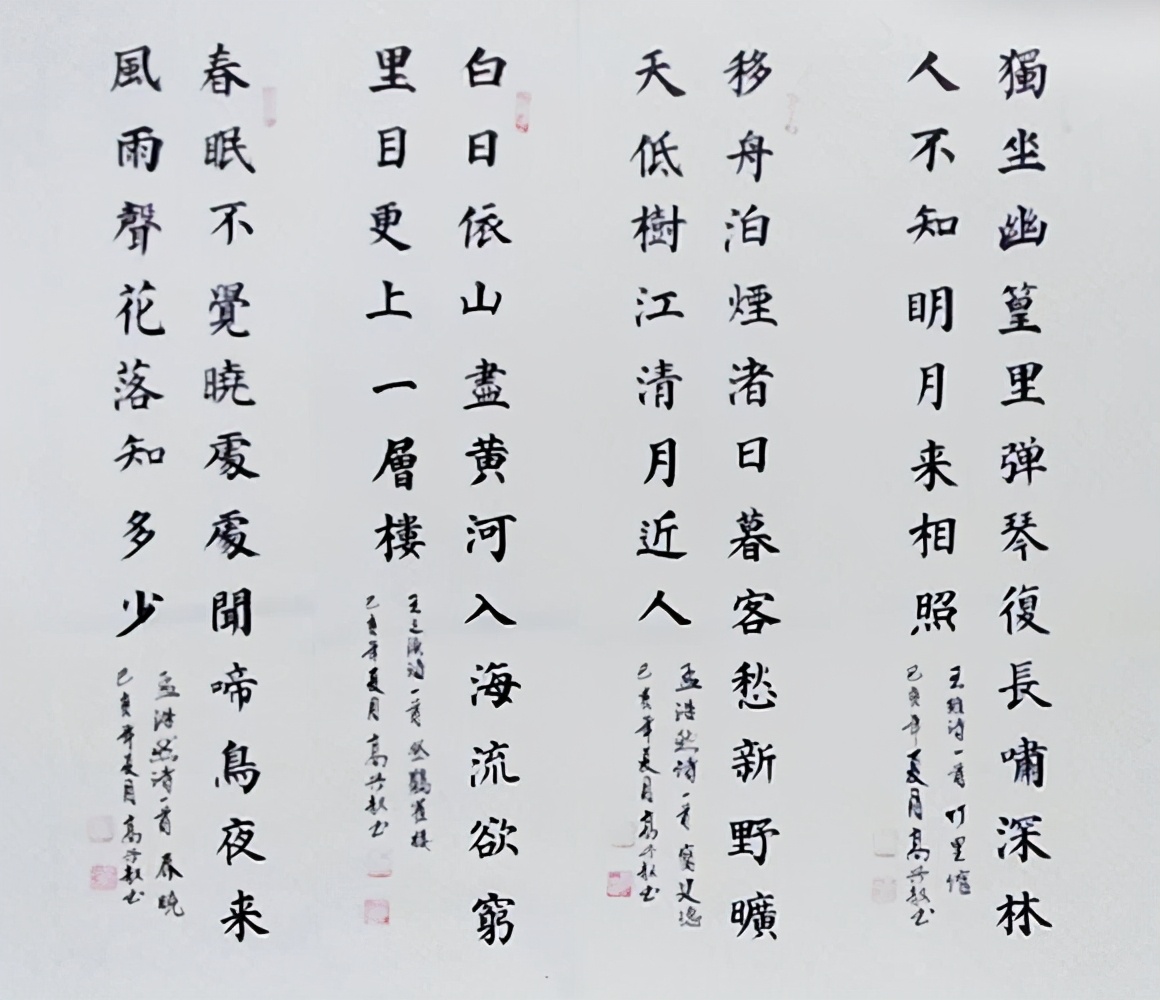 獨坐幽篁里弹琴復長嘯深林
人不知明月来相照
王維诗一首 竹里馆
己亥年夏月 高书
移舟泊煙渚日暮客愁新野曠
天低樹江清月近人
孟浩然诗一首 宿建德
己亥年夏月 高书
白日依山盡黄河入海流欲窮
里目更上一層樓
王之涣诗一首 登鹳雀楼
己亥年夏月 高书
春眠不覺曉處處聞啼鳥夜来
風雨聲花落知多少
孟浩然诗一首 春晓
己亥年夏月 高书